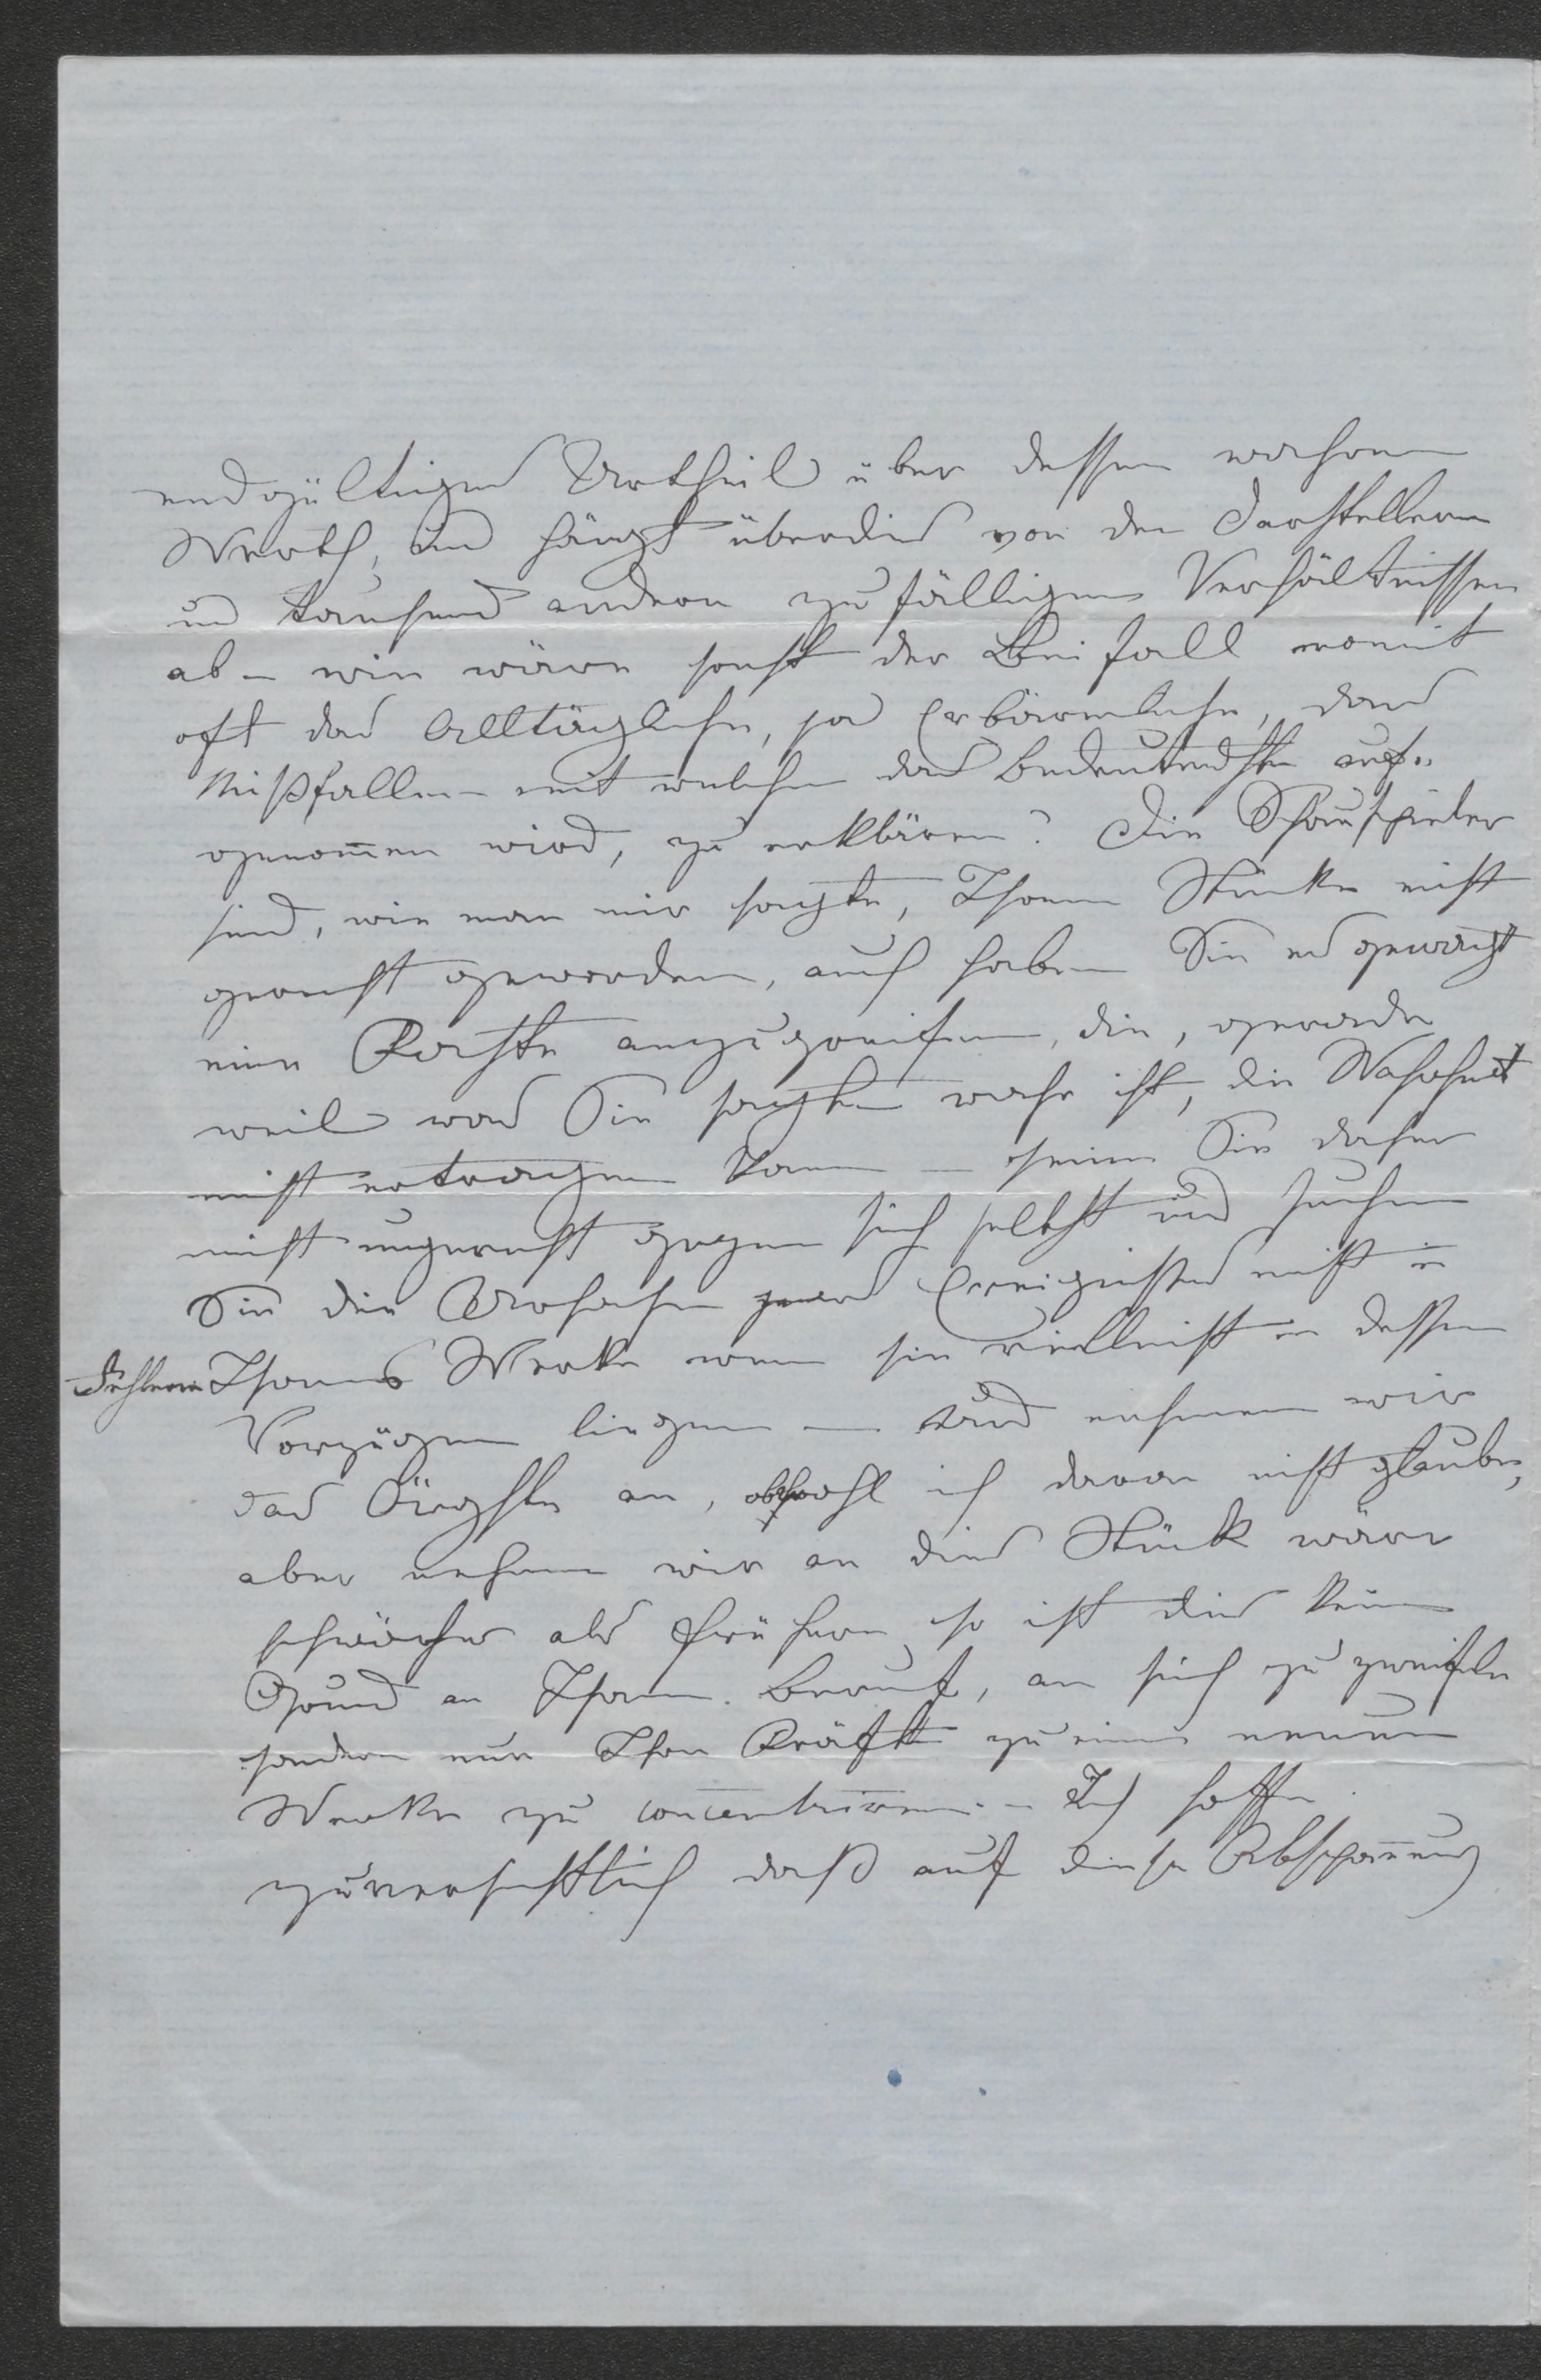 endgültiges Urtheil über dessen wahren
Werth, und hängt überdies von den Darstellern
und tausend andern zufälligen Verhältnissen
ab – wie wäre sonst der Beifall womit
oft das Alltägliche, ja Erbärmliche, das
Mißfallen – mit welchem das Bedeutendste auf-
genom̄en wird, zu erklären? Die Schauspieler
sind, wie man mir sagte, Ihrem Stücke nicht
gerecht geworden, auch haben Sie es gewagt
eine Kaste anzugreifen, die, gerade
weil was Sie sagten wahr ist, die Wahrheit
nicht ertragen kann – seien Sie daher
nicht ungerecht gegen sich selbst und suchen
Sie die Ursachen jenes Ereignisses nicht in
Fehlern Ihres Werke wenn sie vielleicht in dessen
Vorzügen liegen – und nehmen wir
das Ärgste an, obwohl ich daran nicht glaube,
aber nehmen wir an dies Stück wäre
schwächer als frühere, so ist dies kein
Grund an Ihrem Beruf, an sich zu zweifeln
sondern nur Ihre Kräfte zu einem neuen
Werke zu concentriren. – Ich hoffe
zuversichtlich daß auf diese Abspan̄ung